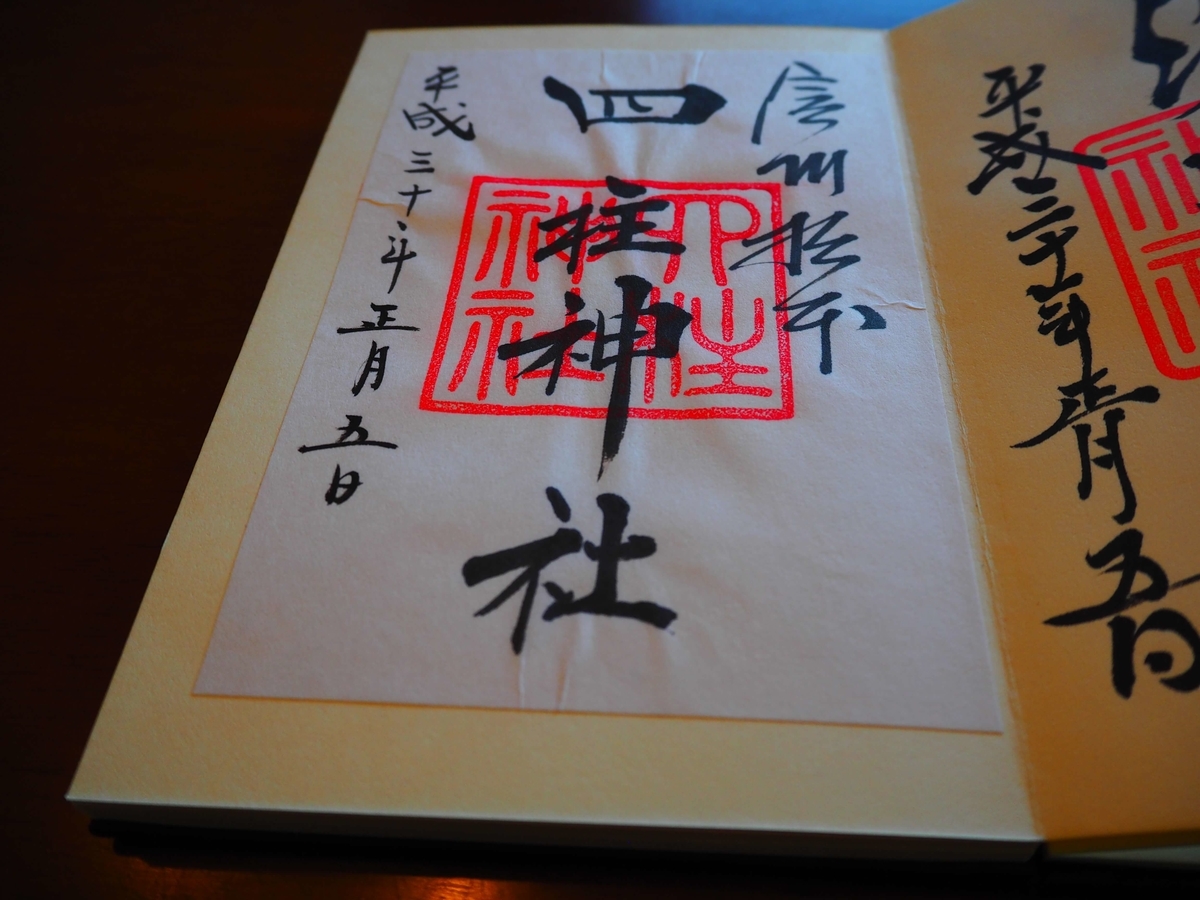 平成三十年正月五日
信州松本
四柱神社
四柱
神社
平成三十年正月五日